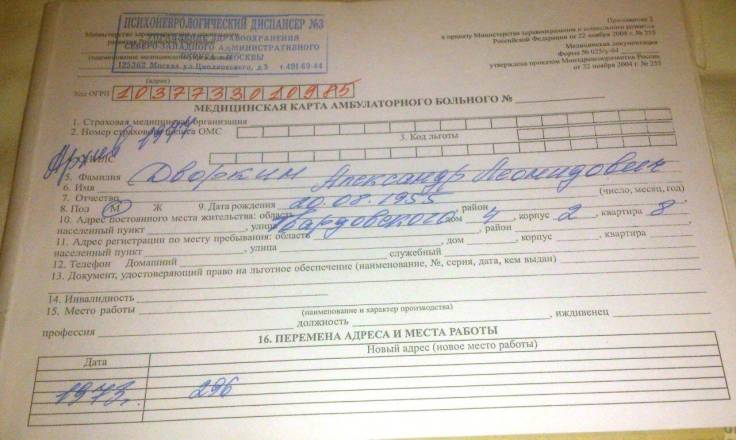 ПСИХОНЕВРОЛОГИЧЕСКИЙ ДИСПАНСЕР №3
УПРАВЛЕНИЯ ЗДРАВООХРАНЕНИЯ
СЕВЕРО-ЗАПАДНОГО АДМИНИСТРАТИВНОГО
ОКРУГА Г. МОСКВЫ
125362 Москва ул Циолковского, д.3 т.491-69-44
(адрес)
Приложение
к приказу Министерства здравоохранения и социального развития
Российской Федерации от 22 ноября 2004 г. № 255
Медицинская документация
Форма № 025/у-04
утверждена приказом Минздравсоцразвития России
от 22 ноября 2004 г. № 255
Код ОГРН 1037733010985
МЕДИЦИНСКАЯ КАРТА АМБУЛАТОРНОГО БОЛЬНОГО №
1. Страховая медицинская организация
2. Номер страхового полиса ОМС
3. Код льготы
Архив
5. Фамилия Дворкин
6. Имя Александр Леонидович
7. Отчество
8. Пол М Ж 9. Дата рождения 20.08.1955 (число, месяц, год)
10. Адрес постоянного места жительства: область район
населенный пункт , улица Твардовского дом 4 , корпус 2 , квартира 8
11. Адрес регистрации по месту пребывания: область , район
населенный пункт , улица , дом , корпус , квартира
12. Телефон Домашний служебный
13. Документ, удостоверяющий право на льготное обеспечение (наименование, №, серия, дата, кем выдан)
14. Инвалидность
15. Место работы
(наименование и характер производства)
профессия должность , иждивенец
16. ПЕРЕМЕНА АДРЕСА И МЕСТА РАБОТЫ
Дата Новый адрес (новое место работы)
1973г. 296